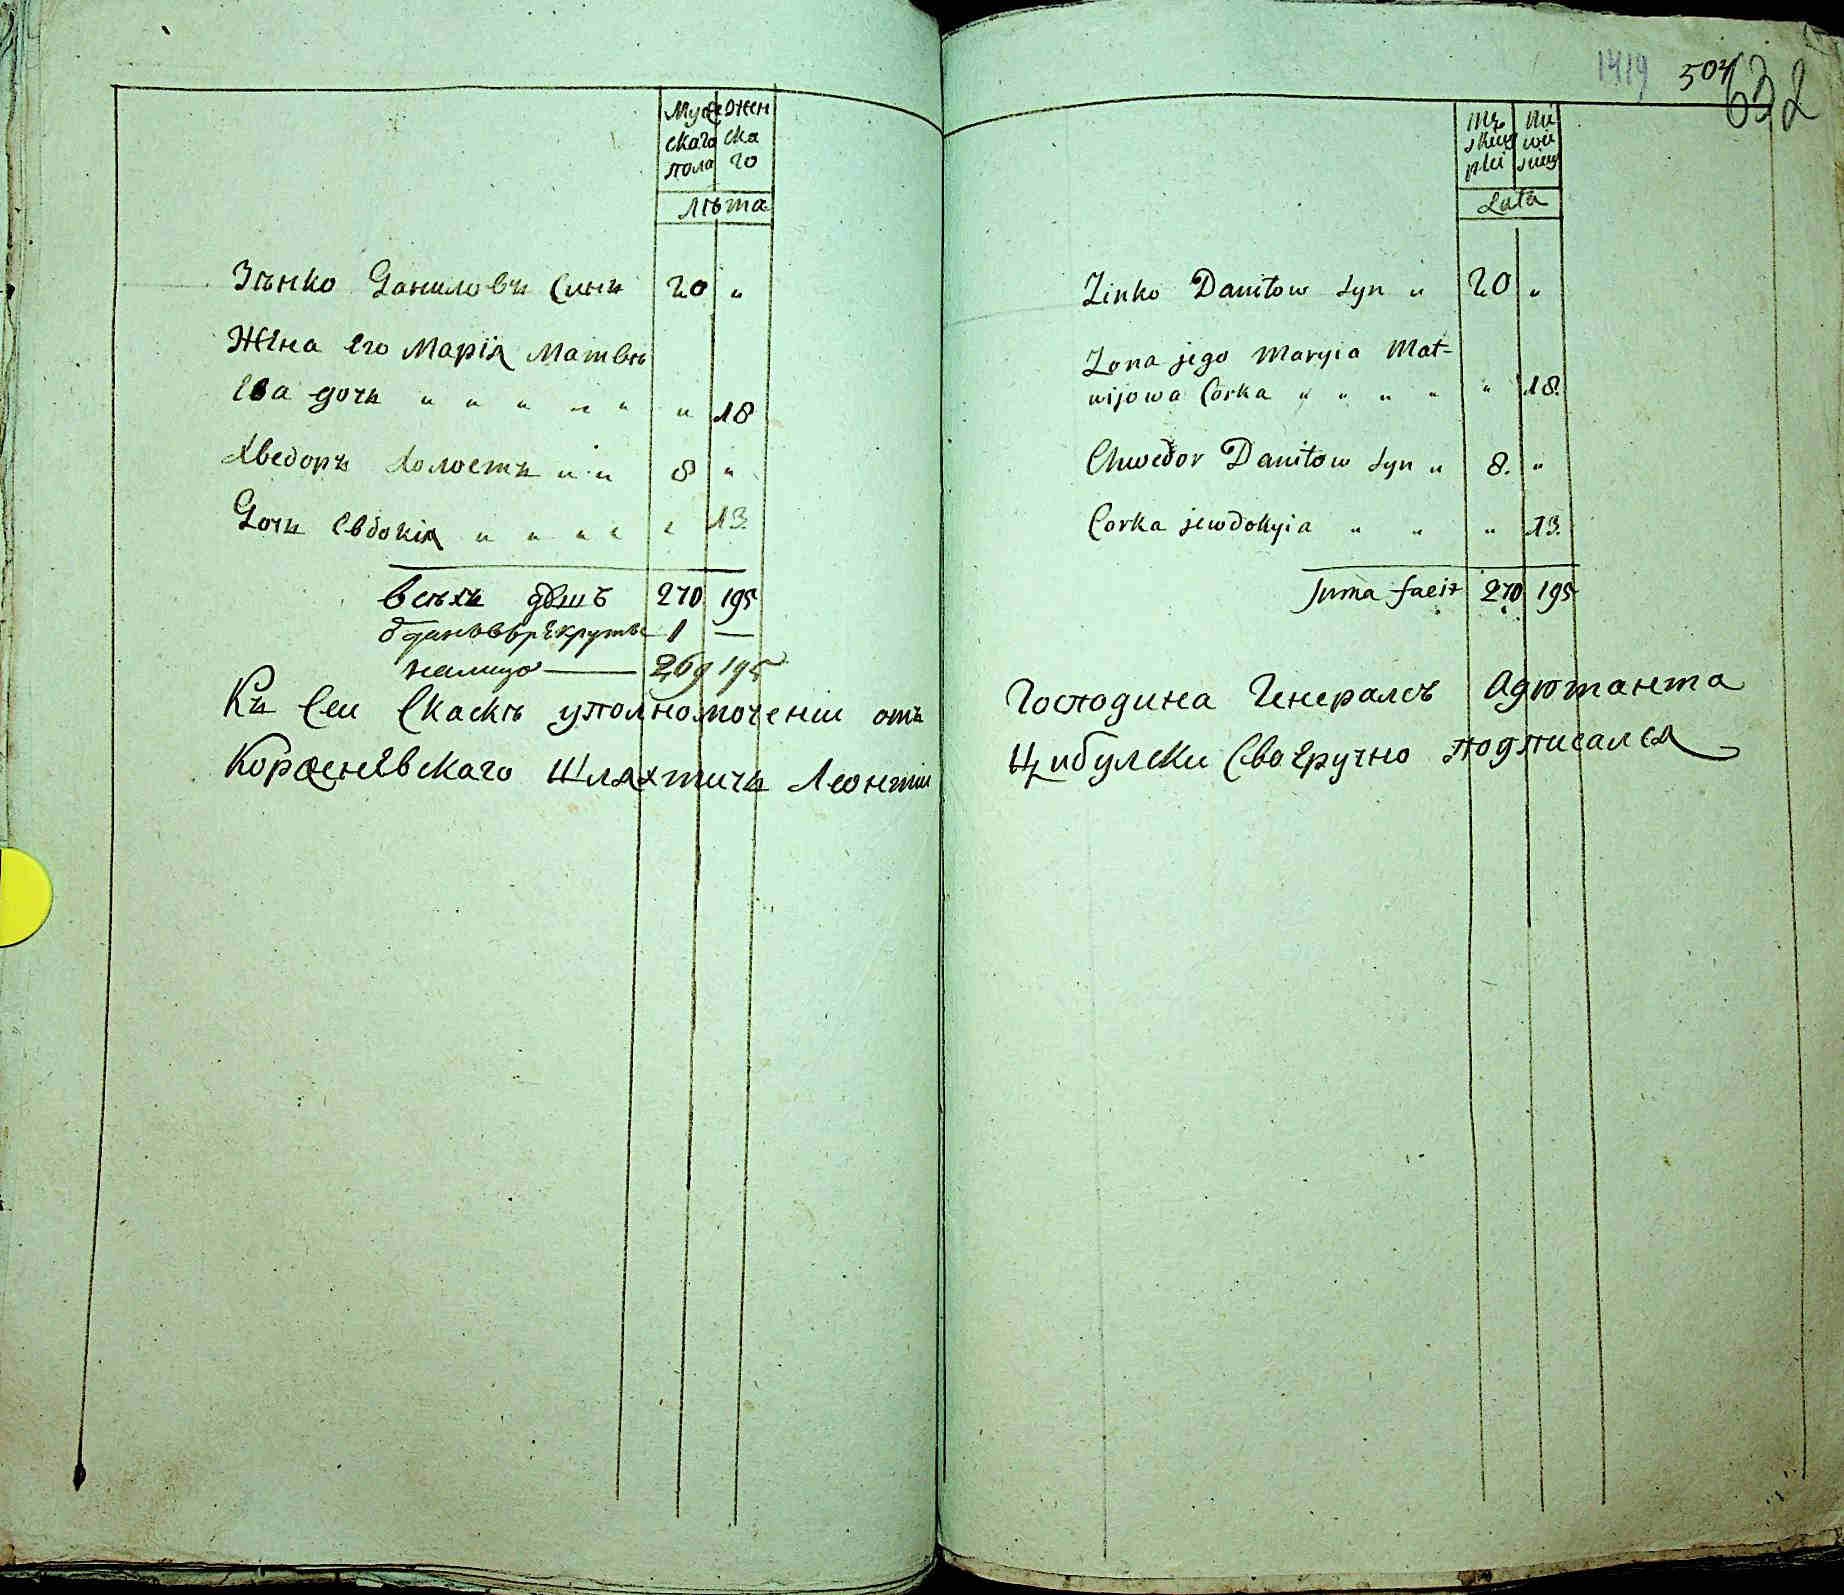 Муже Жен
скаго ска
пола го
Лѣта
Зѣнко Даниловъ Синъ 20 "
Жена его Марія Матвѣ
ева дочъ " " " " " " 18
Хведоръ Холостъ " " 8 "
Дочъ Евдокія " " " " " 13.
Всѣхъ душъ 270 195
Отданъ в рекруты 1 —
налицо — 269 195
Къ Сеи Скаскѣ уполномоченіи отъ
Шляхтичъ Леонтіи
1419 504 632
Mę Nie
skiey wie
płci sciey
Lata
Zinko Daniłow Syn " 20 "
Zona jego Maryia Mat-
wijowa Corka " " " " " 18.
Chwedor Daniłow Syn " 8. "
Corka jewdokyia " " " 13.
Suma facit 270 195
Господина Генералсъ Адютанта
Цибулски Своеручно подписался